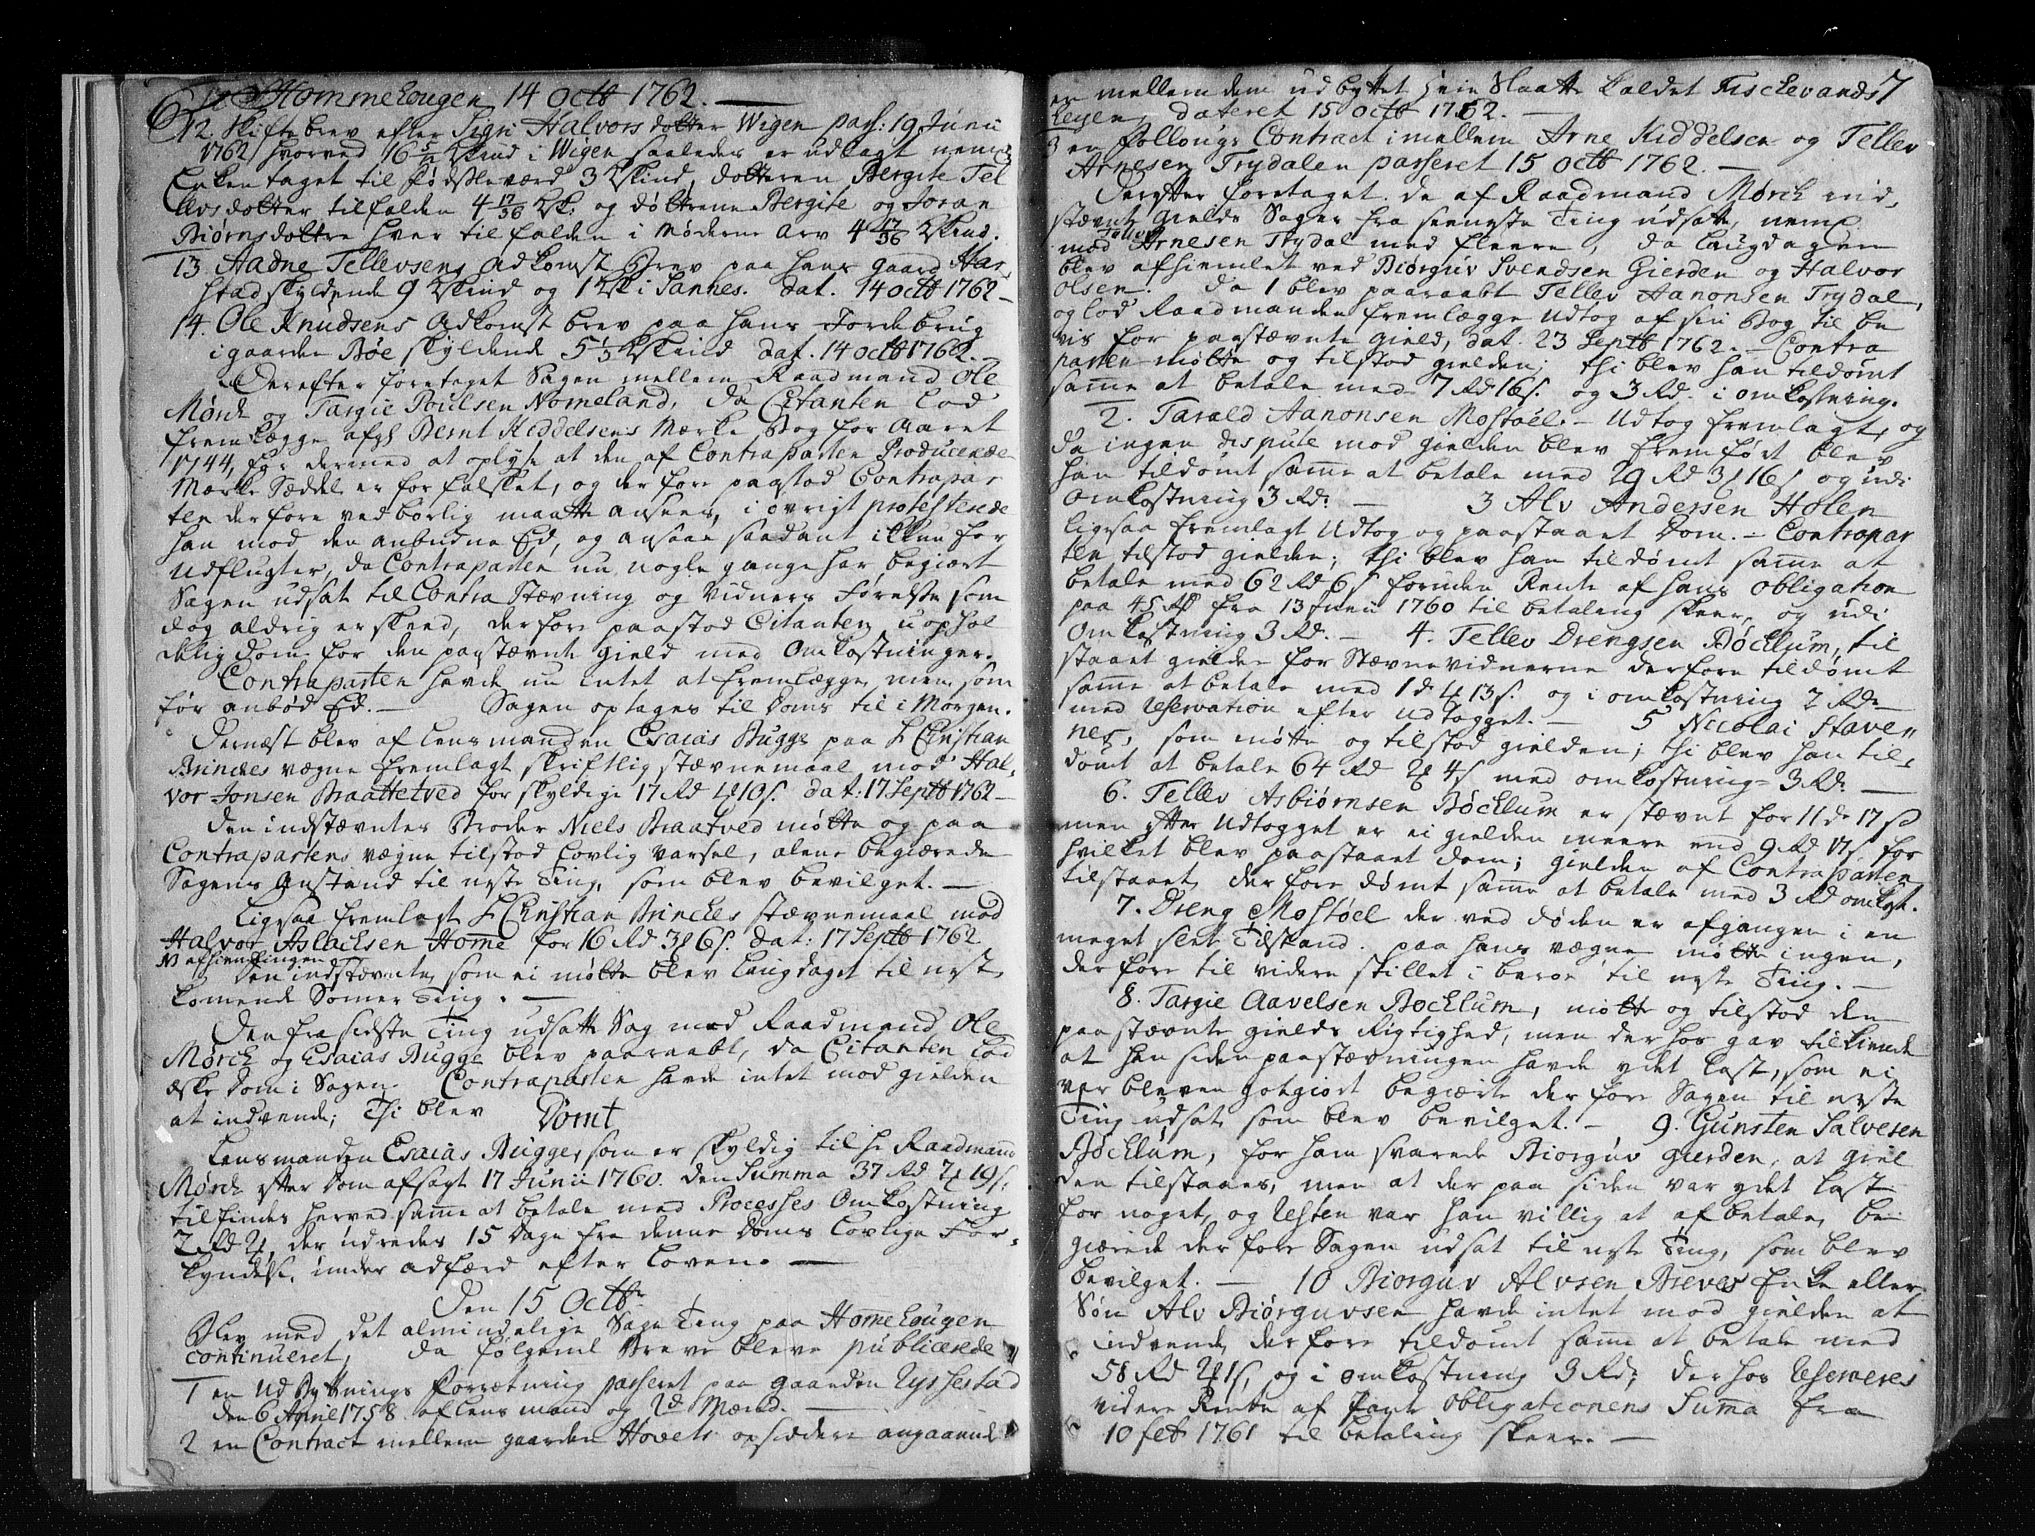 6
Hommelougen 14 Octb 1762.
12. Skiftebrev efter Sigri Halvorsdotter Wigen pass: 19 Junii
1762 hvorved 16 5/12 Skind i Wigen saaledes er udlagt neml
Enken taget til Fødsleværd 3 Skind, dotteren Bergite Tel
levsdotter tilfalden 4 17/36 Sk: og døttrene Bergite og Joran
Biørnsdøttre hver tilfalden i Møderne Arv 4 17/36 Skind.
13 Aadne Tellevsens Adkomst Brev paa hans gaard Har,
stad skyldende 9 Skind og 1 Sk i Sannes. dat. 14 octb 1762
14. Ole Knudsens Adkomst brev paa hans Fordebrug
i gaarden Bøe skyldende 5 1/3 Skind dat. 14 octb 1762.
Derefter foretaget Sagen mellem Raadmand Ole
Mørch og Targie Poulsen Nomeland, da Citanten lod
fremlægge afg: Bernt Keddelsens Mærke Bog for Aaret
1744, for dermed at oplyse at den af Contraparten Producerede
Mærke Sæddel er forfalsket, og derfore paastod Contrapar
ten derfore vedbørlig maatte ansees, i øvrigt protesterede
han mod den anbudne Ed, og ansaae saadant ikkun for
Udflugter, da Contraparten nu nogle gange har begiert
Sagen udsat til Contra Stævning og Vidners Førelse som
dog aldrig er skeed, derfore paastod Citanten uophol
delig dom for den paastævnte gield med Omkostninger.
Contraparten havde nu intet at fremlægge, men som
før anbød Ed. — Sagen optages til Doms til i Morgen.
Dernæst blev af Lensmanden Esaias Bugge paa Hr Christian
Brinches vægne fremlagt skriftlig stævnemaal mod Hal,
vor Jonsen Braattetved for skyldige 17 Rd 1 ₰ 10 s. dat: 17 Septb 1762
Den indstævntes Broder Niels Braatved møtte og paa
Contrapartens vægne tilstod lovlig varsel, alene begiærede
Sagens Anstand til neste Ting, som blev bevilget. —
Ligsaa fremlagt Hr Christian Brinches stævnemaal mod
Halvor Aslachsen Home for 16 Rd 3 ₰ 6 s. dat: 17 Septb 1762
N afhiemlingen
Den indstævnte, som ei møtte blev Laugdaget til nest
komende Somer Ting. —
Den fra sidste Ting udsatte Sag mod Raadmand Ole
Mørch og Esaias Bugge blev paaraabt, da Citanten lod
æske Dom i Sagen. Contraparten havde intet mod gielden
at indvende; Thi blev Dømt
Lensmanden Esaias Bugge, som er skyldig til hr Raadmand
Mørch efter Dom afsagt 17 Junii 1760 den Summa 37 Rd 2 ₰ 19 s:
tilfindes herved samme at betale med Processes Omkostning
2 Rd 2 ₰, der udredes 15 Dage fra denne Doms Lovlige For,
kyndelse, under adfærd efter Loven. —
Den 15 Octbr
Blev med det almindelige Sage Ting paa Homelougen
continueret, da følgende Breve bleve publicerede
1 en Udbyttnings Forretning passeret paa gaarden Ryssestad
den 6 April 1758 af Lensmand og 2de Mænd. —
2 en Contract mellem gaarden Hovets opsiddere angaaende
7
en mellem dem udbyttet Heie Slaatte kaldet Fischevands
Leyen, dateret 15 octb 1762. —
3 en Follougs Contract imellem Arne Kiddelsen og Tellev
Arnesen Trydalen passeret 15 octb 1762. —
Derefter foretaget de af Raadmand Mørch ind,
stævnte Gields Sager fra seeneste Ting udsatte, neml
mod Arnesen Trydal med fleere, da laugdagen
blev afhiemlet ved Biørguv Svendsen Gierden og Halvor
olsen. da 1 blev paaraabt Tellev Aanonsen Trydal,
og lod Raadmanden fremlægge Udtog af sin Bog til be
vis for paastævnte gield, dat. 23 Septb 1762. — Contra
parten møtte og tilstod gielden; thi blev han tildømt
samme at betale med 7 Rd 16 s. og 3 Rd. i omkostning.
2. Tarald Aanonsen Mostøel. — Udtog fremlagt, og
da ingen dispute mod gielden blev fremført blev
han tildømt samme at betale med 29 Rd 3 ₰ 16 s og udi
Omkostning 3 Rd: — 3 Alv Andersen Holen
ligesaa fremlagt Udtog og paastaaet Dom. — Contrapar
ten tilstod gielden; thi blev han tildømt samme at
betale med 62 Rd 6 s foruden Rente af hans obligation
paa 45 Rd fra 13 Junii 1760 til betaling skeer, og udi
Omkostning 3 Rd. — 4. Tellev Drengsen Bøchlum, til
staaet gielden for Stævnevidnerne derfore tildømt
samme at betale med 1 d 4 ₰ 13 s. og i omkostning 2 Rd
med Reservation efter Udtogget. — 5 Nicolai Stave"
nes, som møtte og tilstod gielden; thi blev han til,
dømt at betale 64 Rd 2 ₰ 4 s med omkostning 3 Rd. —
6. Tellev Asbiørnsen Bøchlum er stævnt for 11 d 17 s
men efter Udtogget er ei gielden meere end 9 Rd 17 s for
hvilket blev paastaaet dom; gielden af Contraparten
tilstaaet, derfore dømt samme at betale med 3 Rd omkost.
7. Dreng Mostøel der ved døden er afgangen i en
meget slet Tilstand. paa hans vægne møtte ingen,
derfore til videre skillet i beroe til neste Ting. —
8. Targie Aavelsen Bochlum, møtte og tilstod den
paastævnte gields Rigtighed, men derhos gav tilkiende
at han siden paastævningen havde ydet Last, som ei
var bleven gotgiort begierte derfore Sagen til neste
Ting udsat, som blev bevilget. — 9. Gunsten Salvesen
Bøchlum, for ham svarede Biorguv Gierden, at giel
den tilstaaes, men at der paa siden var ydet Last
for noget, og Resten var han villig at afbetale, be
giærede derfore Sagen udsat til neste Ting, som blev
bevilget. — 10 Biorguv Alvsen Breves Enke eller
Søn Alv Biørguvsen havde intet mod gielden at
indvende, derfore tildømt samme at betale med
58 Rd 2 ₰ 1 s, og i omkostning 3 Rd; derhos Reserveres
videre Rente af Pante obligationens Suma fra
10 feb 1761 til betaling skeer. —